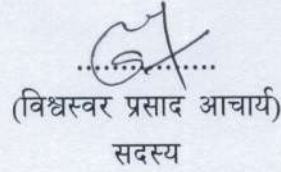 (विश्वस्वर प्रसाद आचार्य)
सदस्य